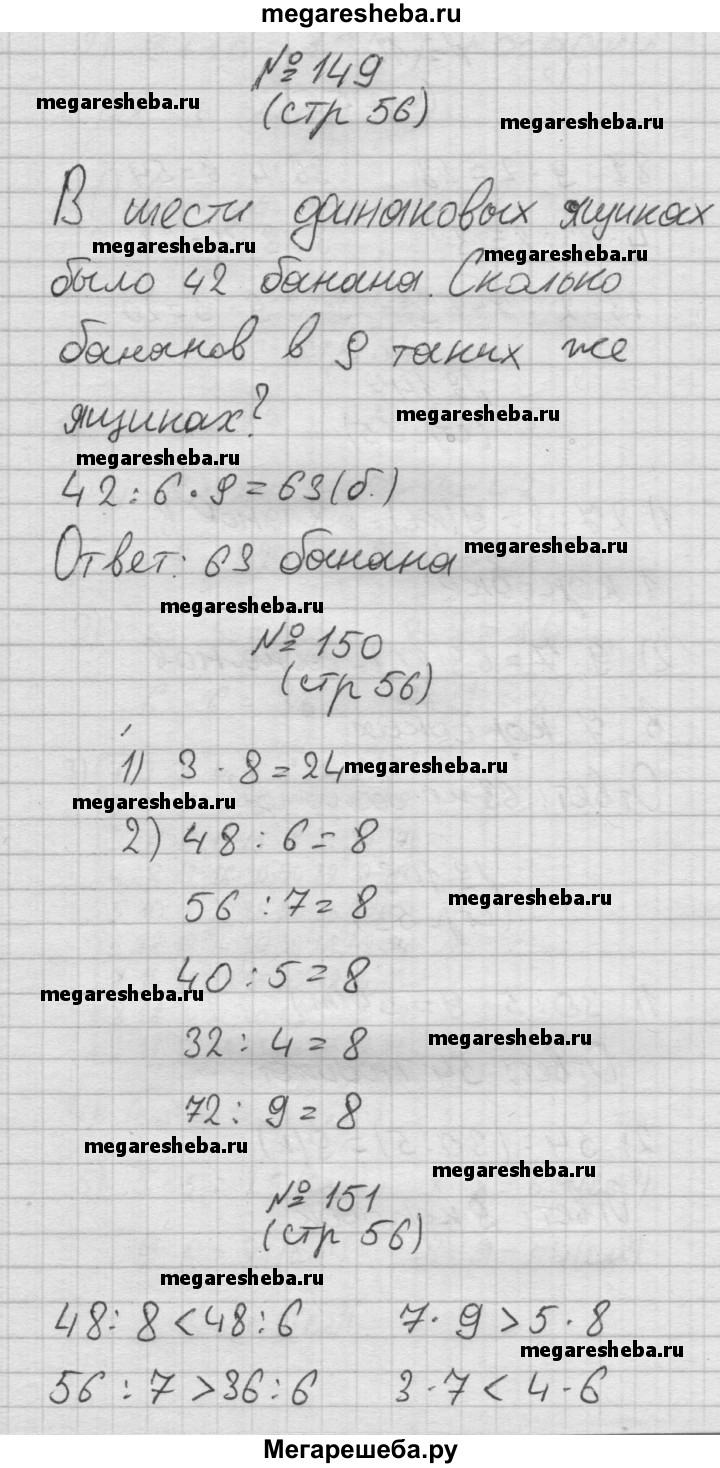 megaresheba.ru
№ 149
megaresheba.ru
(стр 56)
megaresheba.ru
В шести одинаковых ящиках
megaresheba.ru
megaresheba.ru
было 42 банана. Сколько
бананов в 9 таких же
ящиках?
megaresheba.ru
megaresheba.ru
42 : 6 · 9 = 63 (б.)
Ответ: 63 банана
megaresheba.ru
megaresheba.ru
№ 150
(стр 56)
1) 3 · 8 = 24
megaresheba.ru
megaresheba.ru
2) 48 : 6 = 8
56 : 7 = 8
megaresheba.ru
40 : 5 = 8
megaresheba.ru
32 : 4 = 8
megaresheba.ru
72 : 9 = 8
megaresheba.ru
megaresheba.ru
№ 151
(стр 56)
megaresheba.ru
48 : 8 < 48 : 6 7 · 9 > 5 · 8
megaresheba.ru
56 : 7 > 36 : 6 3 · 7 < 4 · 6
Мегарешеба.ру